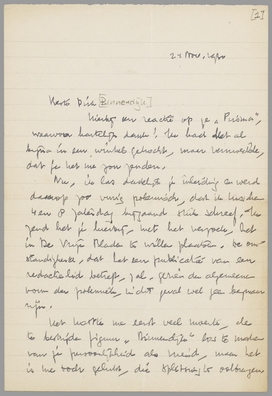 [1]
24 Nov. 1930
Beste Dirk [Binnendijk]
Hierbij een reactie op je „Prisma",
waarvoor hartelijk dank! Ik had het al
bijna in een winkel gekocht, maar vermoedde,
dat je het me zou zenden.
Nu, ik las dadelijk je inleiding en werd
daarop zoo vurig polemisch, dat ik tusschen
4 en 8 Zaterdag bijgaand stuk schreef. Ik
zend het je hierbij, met het verzoek, het
in De Vrije Bladen te willen plaatsen. De om-
standigheid, dat het een publicatie van een
redactielid betreft, zal, gezien de algemeene
vorm der polemiek, in dit geval wel geen bezwaar
zijn.
Het kostte me eerst veel moeite, de
te bestrijden figuur „Binnendijk" los te maken
van je persoonlijkheid als vriend, maar het
is me toch gelukt, die splitsing te voltrekken